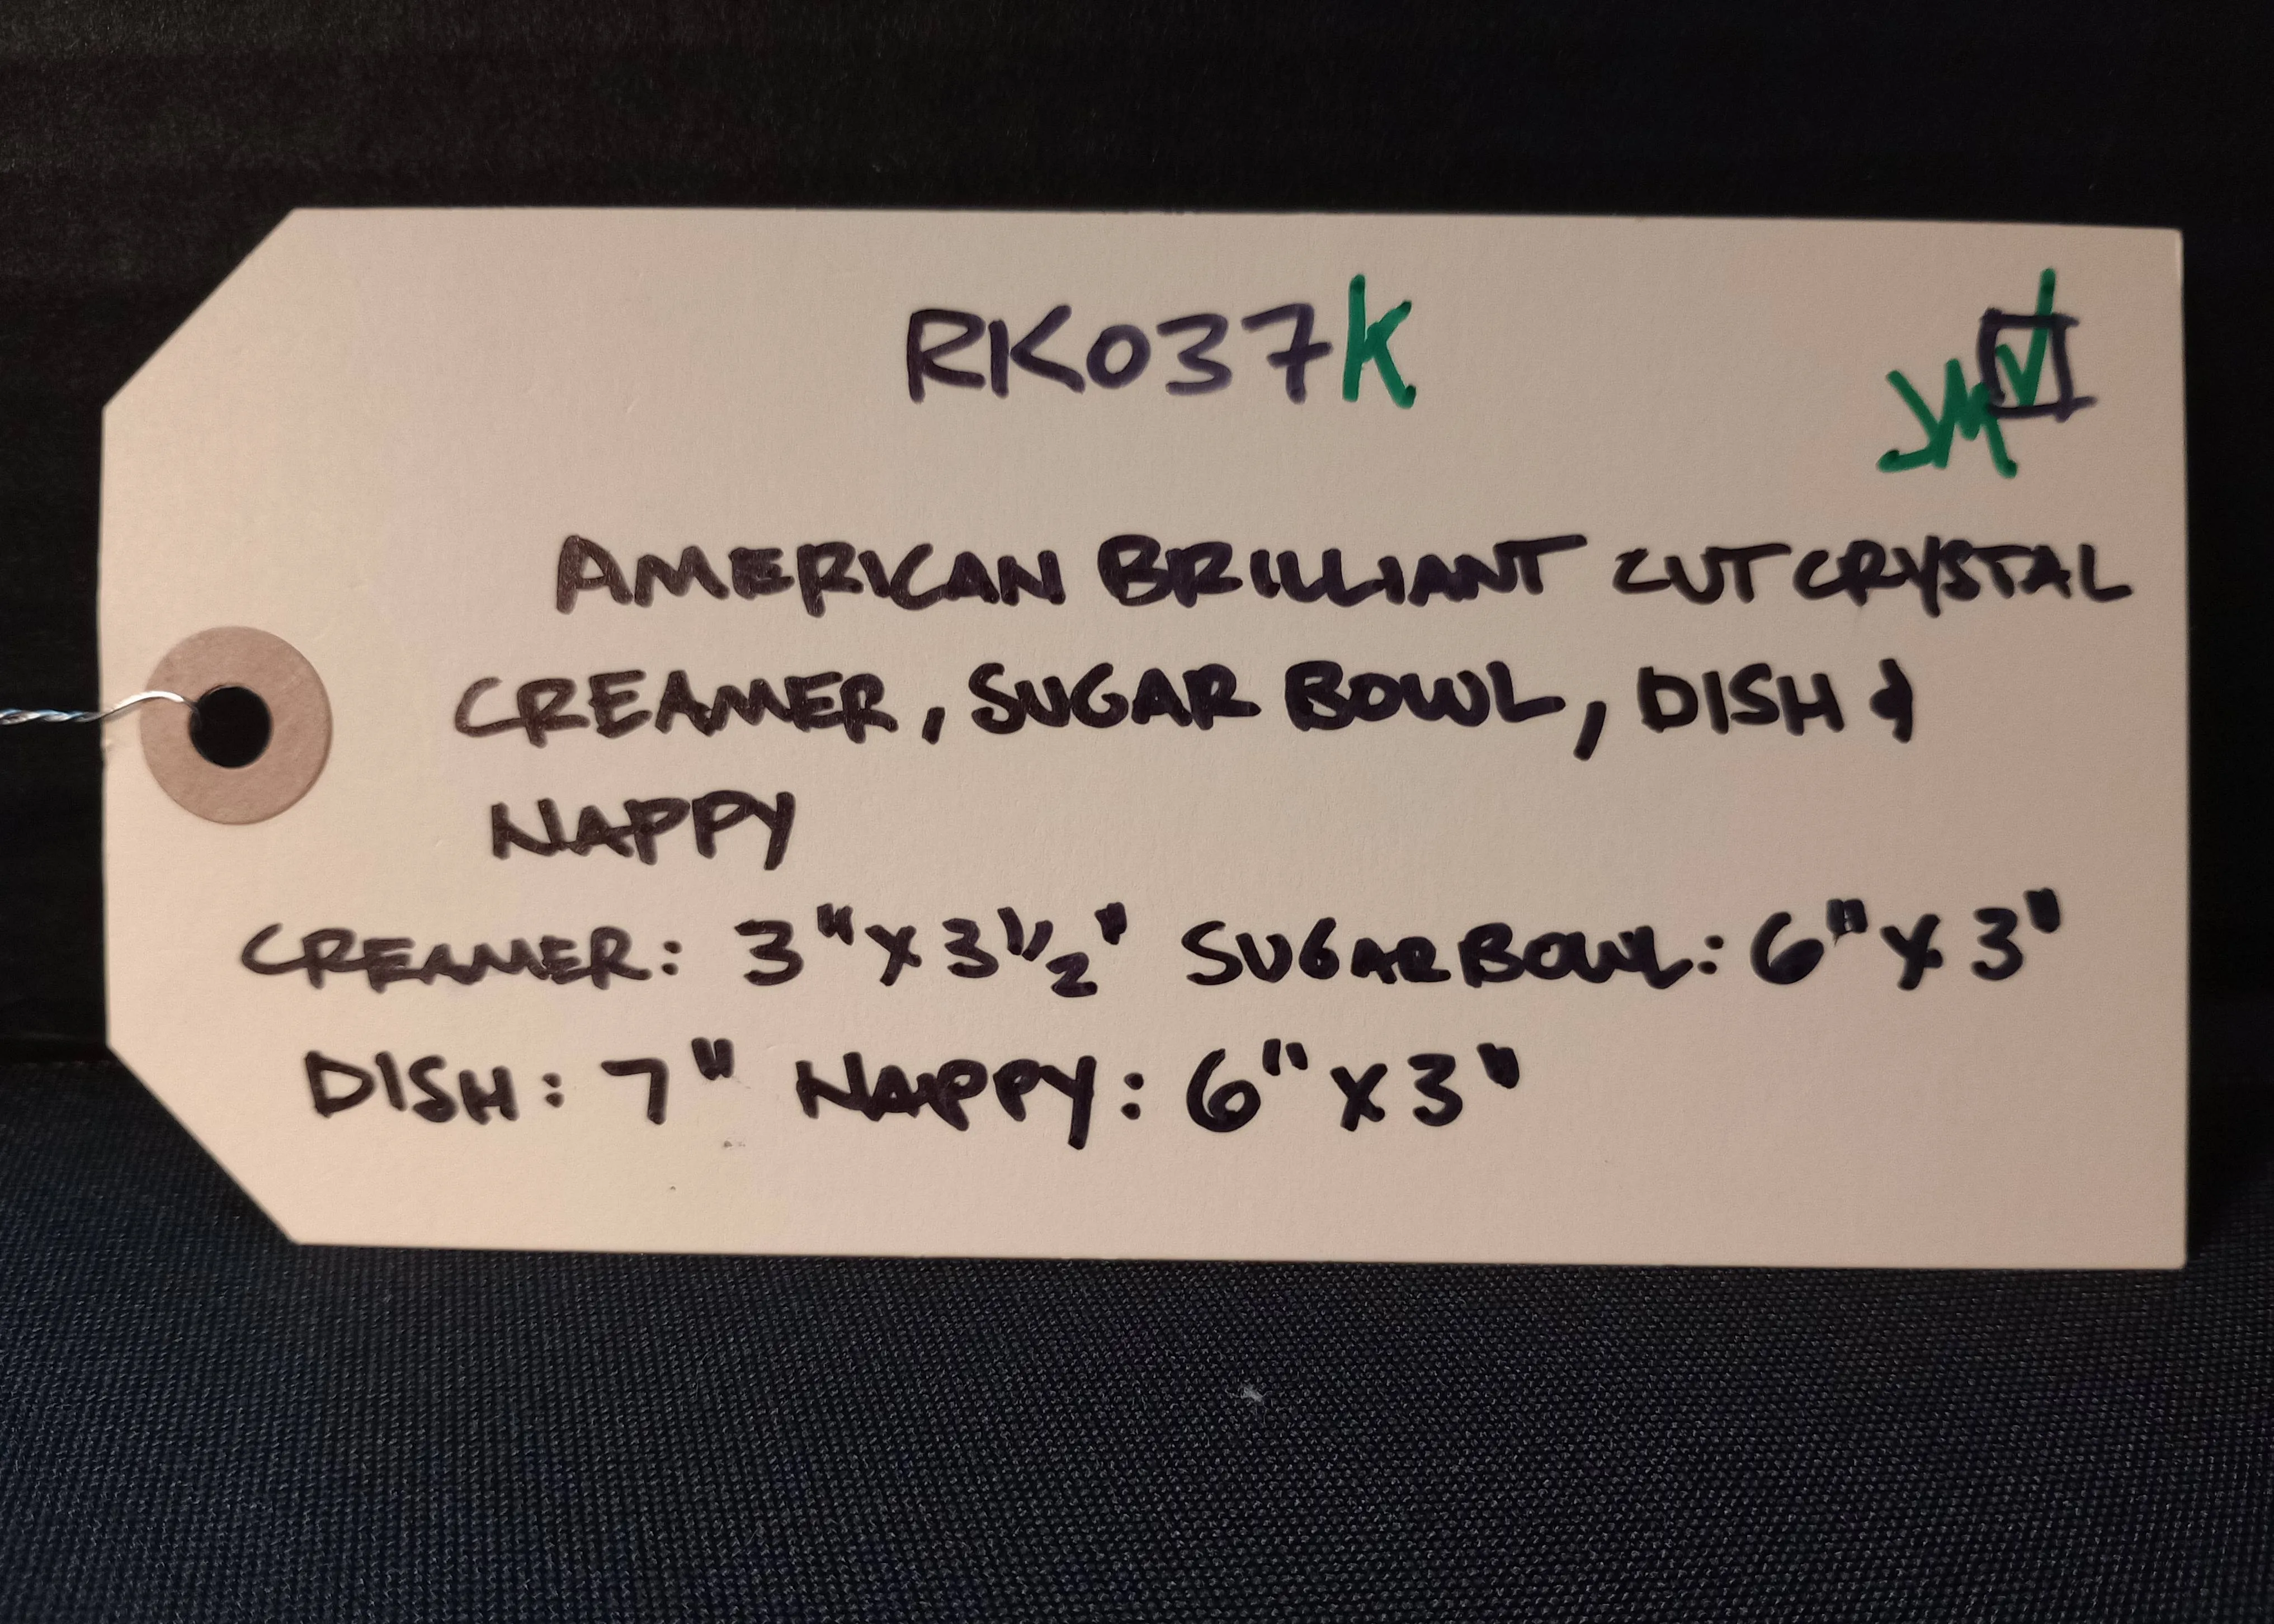 RK037K
JM ☑
AMERICAN BRILLIANT CUT CRYSTAL
CREAMER, SUGAR BOWL, DISH &
NAPPY
CREAMER: 3" X 3 1/2" SUGAR BOWL: 6" X 3"
DISH: 7" NAPPY: 6" X 3"